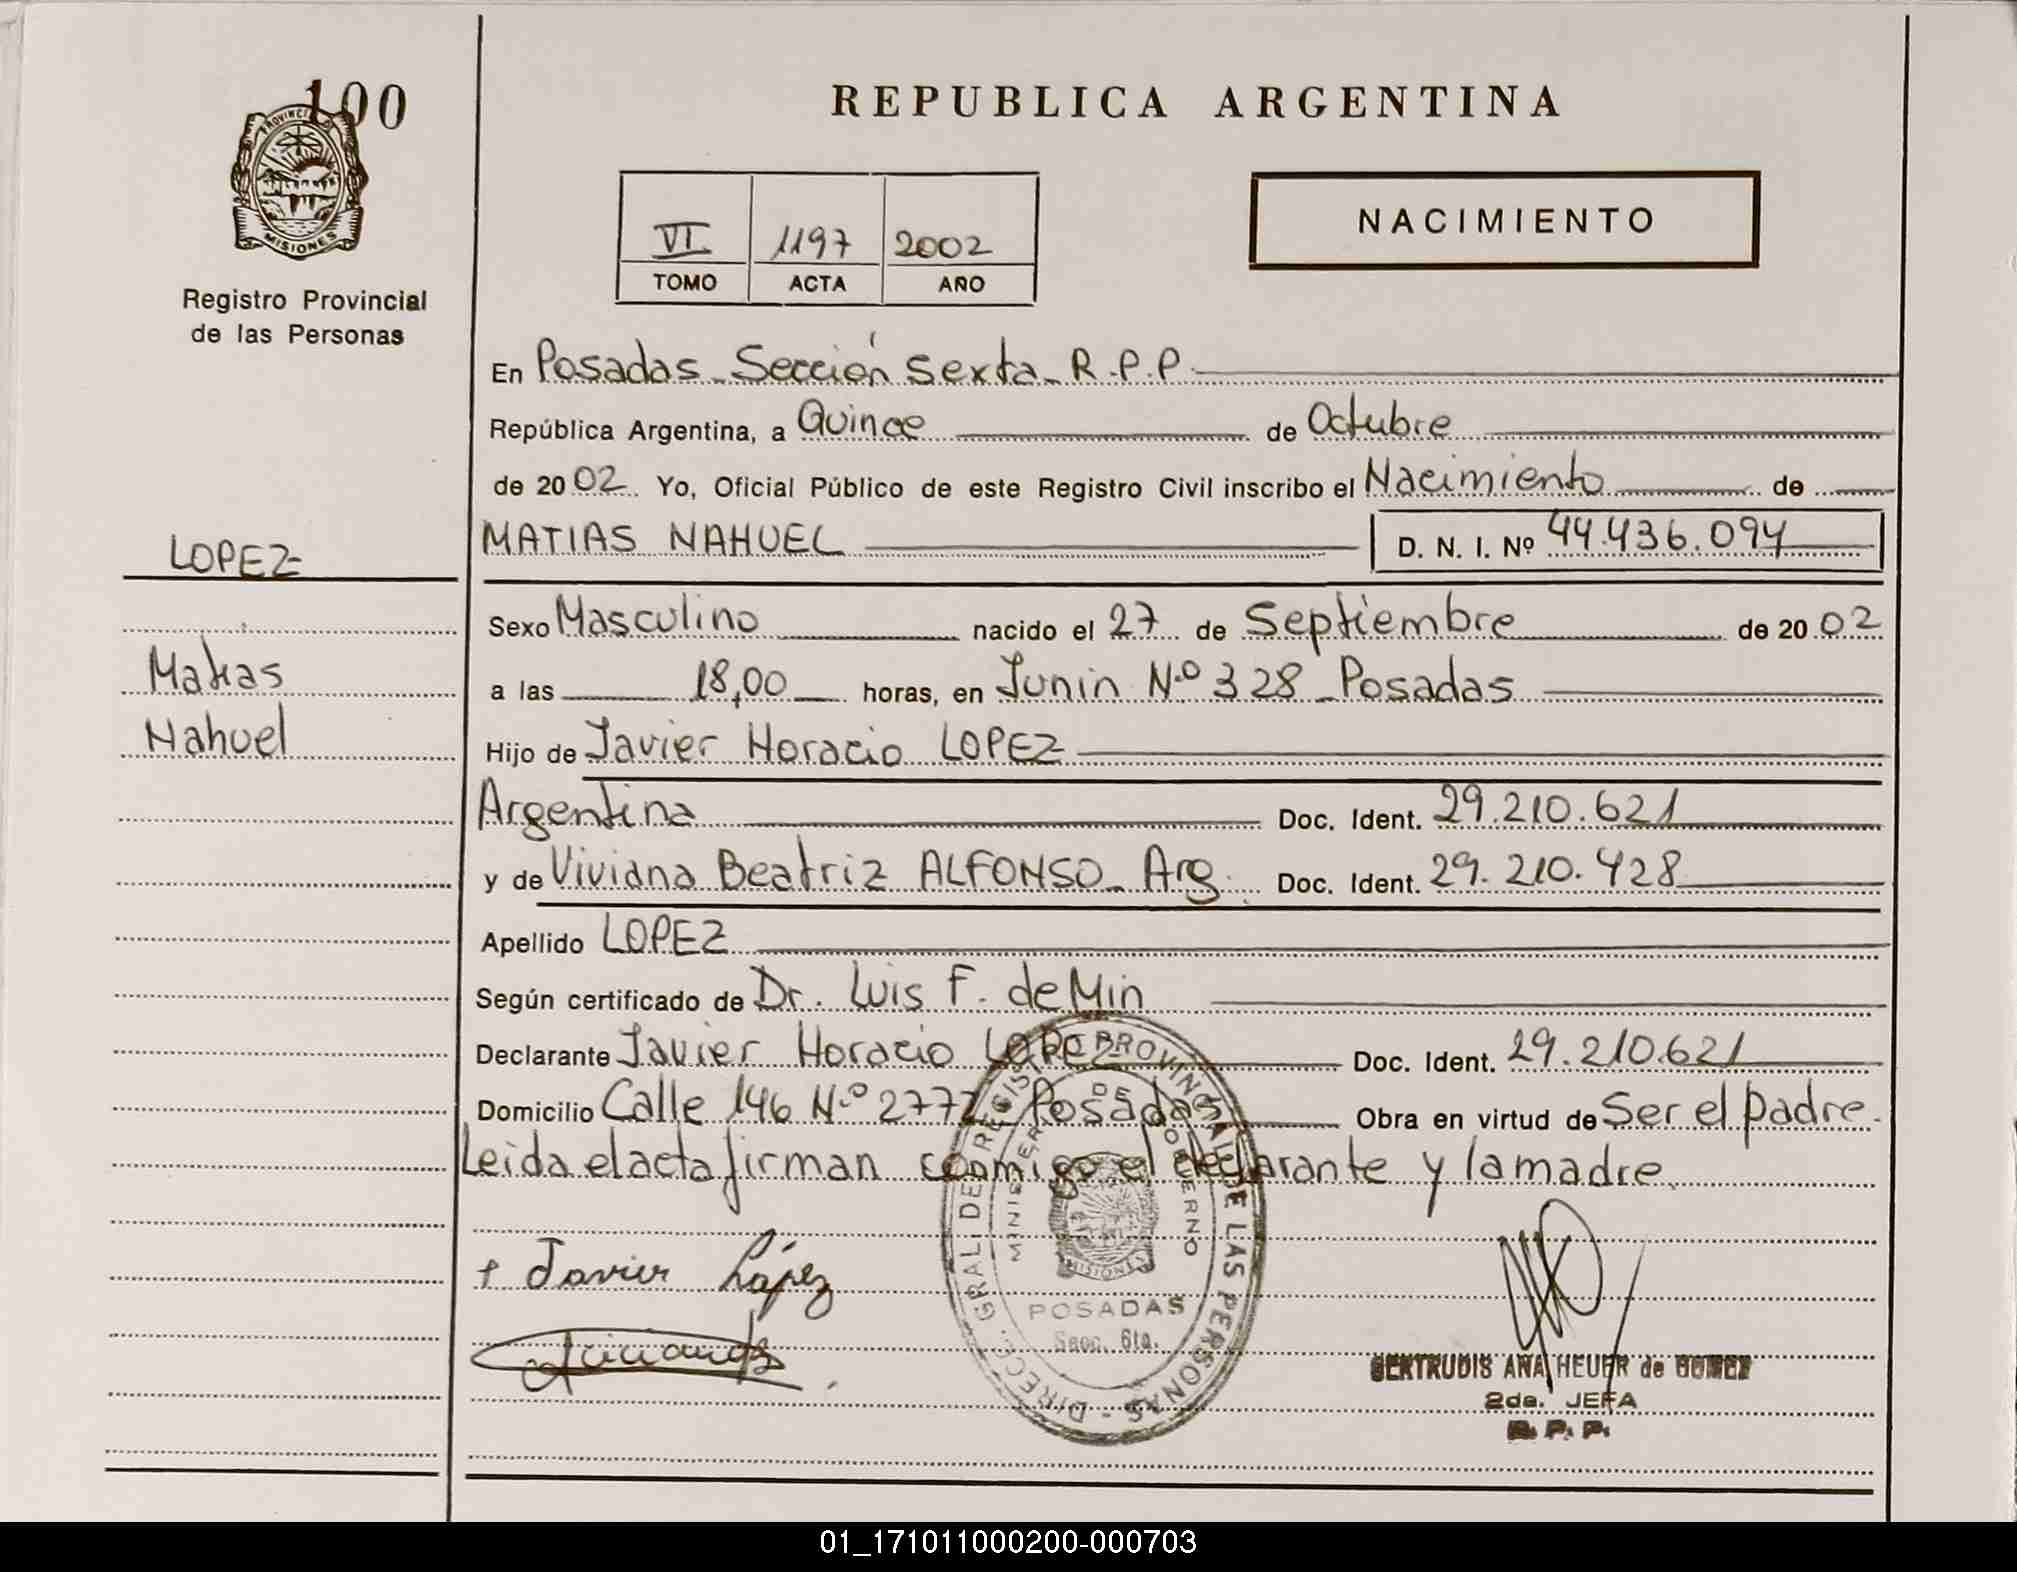 100
PROVINCIA D
MISIONES
Registro Provincial
de las Personas
LOPEZ
Matias
Nahuel
REPUBLICA ARGENTINA
VI 1197 2002
TOMO ACTA AÑO
NACIMIENTO
En Posadas - Sección Sexta - R.P.P.
República Argentina, a Quince de Octubre
de 2002. Yo, Oficial Público de este Registro Civil inscribo el Nacimiento de
MATIAS NAHUEL D. N. I. Nº 44.436.094
Sexo Masculino nacido el 27 de Septiembre de 2002
a las 18,00 horas, en Junin N.º 328 - Posadas
Hijo de Javier Horacio LOPEZ
Argentina Doc. Ident. 29.210.621
y de Viviana Beatriz ALFONSO - Arg. Doc. Ident. 29.210.428
Apellido LOPEZ
Según certificado de Dr. Luis F. de Min
Declarante Javier Horacio LOPEZ Doc. Ident. 29.210.621
Domicilio Calle 146 N.º 2772 Posadas Obra en virtud de Ser el padre.
Leida el acta firman conmigo el declarante y la madre.
+ Javier López
DIRECC. GRAL. DE REGIST. PROVINCIAL DE LAS PERSONAS -
MINISTERIO DE GOBIERNO
MISIONES
POSADAS
Secc. 6ta.
GERTRUDIS ANA HEUER de GOMEZ
2da. JEFA
R. P. P.
01_171011000200-000703